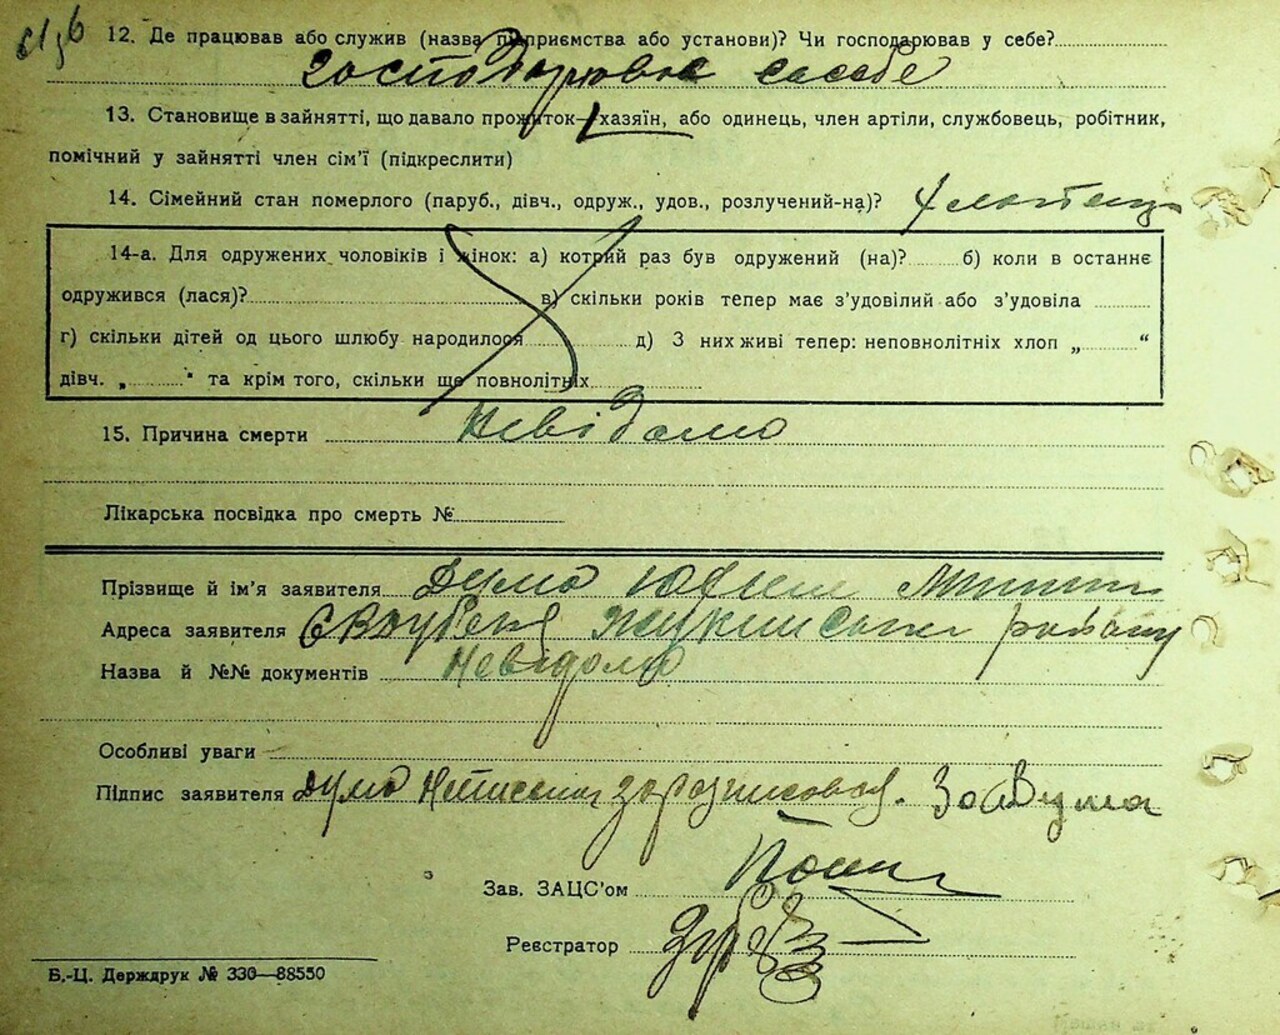 12. Де працював або служив (назва підприємства або установи)? Чи господарював у себе?
господарював в себе
13. Становище в зайнятті, що давало прожиток—хазяїн, або одинець, член артіли, службовець, робітник,
помічний у зайнятті член сім'ї (підкреслити)
14. Сімейний стан померлого (паруб., дівч., одруж., удов., розлучений-на)?
14-а. Для одружених чоловіків і жінок: а) котрий раз був одружений (на)? б) коли в останнє
одружився (лася)? в) скільки років тепер має з'удовілий або з'удовіла
г) скільки дітей од цього шлюбу народилося д) З них живі тепер: неповнолітніх хлоп „ “
дівч. „ " та крім того, скільки ще повнолітніх
15. Причина смерти Невідомо
Лікарська посвідка про смерть №
Прізвище й ім'я заявителя Дума
Адреса заявителя району
Назва й №№ документів Невідомо
Особливі уваги
Підпис заявителя Дума За Дума
Зав. ЗАЦС'ом
Реєстратор
Б.-Ц. Держдрук № 330—88550